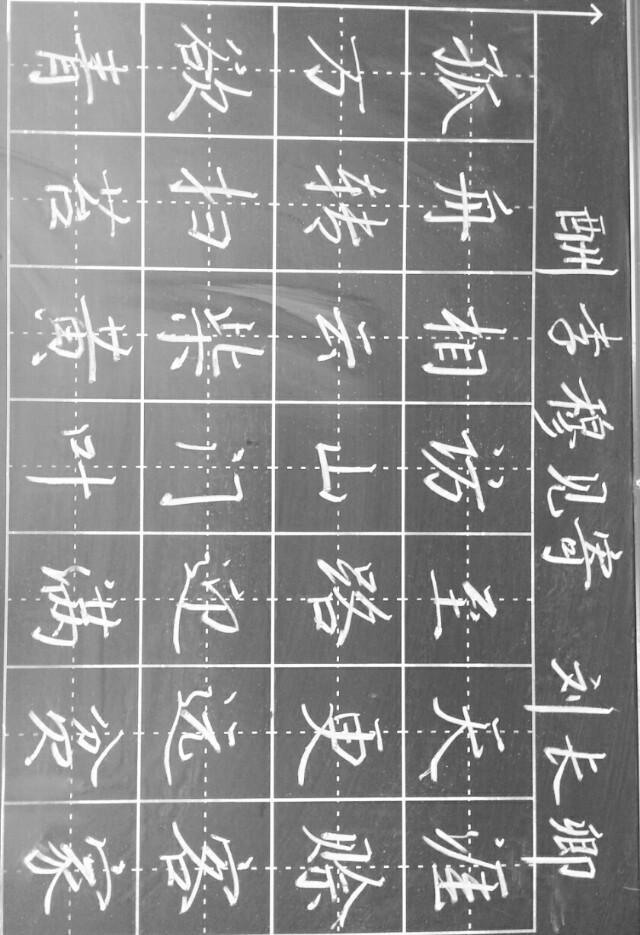 酬李穆见寄 刘长卿
孤舟相访至天涯
万转云山路更赊
欲扫柴门迎远客
青苔黄叶满贫家